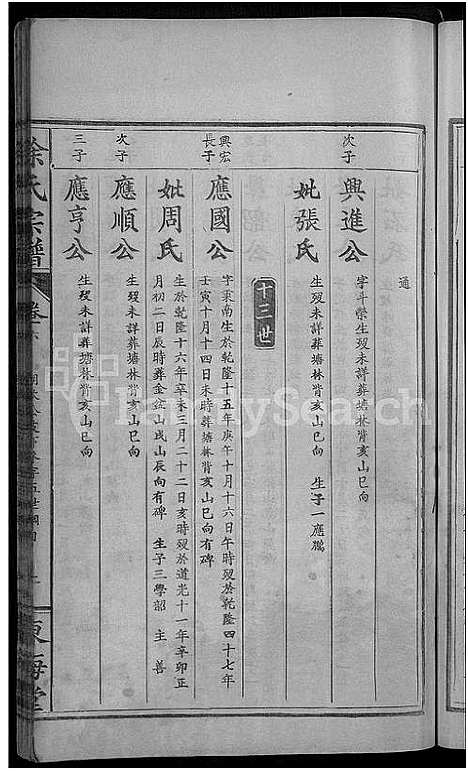 通
次子
興進公
字斗榮生歿未詳葬塘林背亥山巳向
妣張氏
生歿未詳葬塘林背亥山巳向 生子一應鵬
十三世
興宏長子
應國公
字秉南生於乾隆十五年庚午十月十六日午時歿於乾隆四十七年
壬寅十月十四日未時葬塘林背亥山巳向有碑
妣周氏
生於乾隆十六年辛未三月二十二日亥時歿於道光十一年辛卯正
月初二日辰時葬金盆山戌山辰向有碑 生子三學韶 主 善
次子
應順公
生歿未詳葬塘林背亥山巳向
三子
應亨公
生歿未詳葬塘林背亥山巳向
徐氏宗譜
卷六
東海堂
FamilySearch